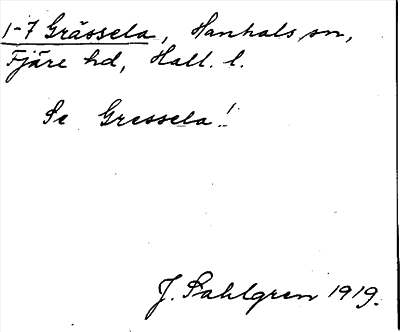 1-7 Grässela, Hanhals sn,
Fjäre hd, Hall. l.
Se Gressela!
J. Sahlgren 1919.